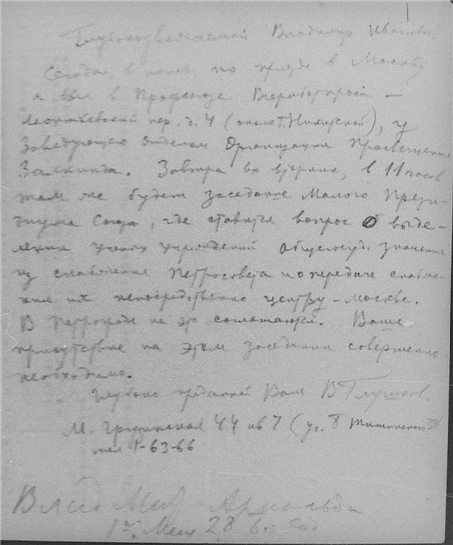 Глубокоуважаемый Владимир Иванович!
Сегодня, в понед. по приезде в Москву
я был в Профсоюзе Всеработпрос –
Леонтьевский пер. д. 4 (около Б. Никитской), у
Заведующего Отделом Организации Просвещения
Залкинда. Завтра во вторник, в 11 часов
там же будет заседание Малого Прези-
диума Союза, где ставится вопрос о выде-
лении ученых учреждений общегосуд. значения
из снабжения Петросовета и о передаче снабже-
ния их непосредственно центру – Москве.
В Петрограде на это соглашаются. Ваше
присутствие на этом заседании совершенно
необходимо.
Глубоко преданный Вам В Глушков.
М. Грузинская 44 кв 7 (уг. Тишинского
тел 1-63-66
Владимир Арнольди
28